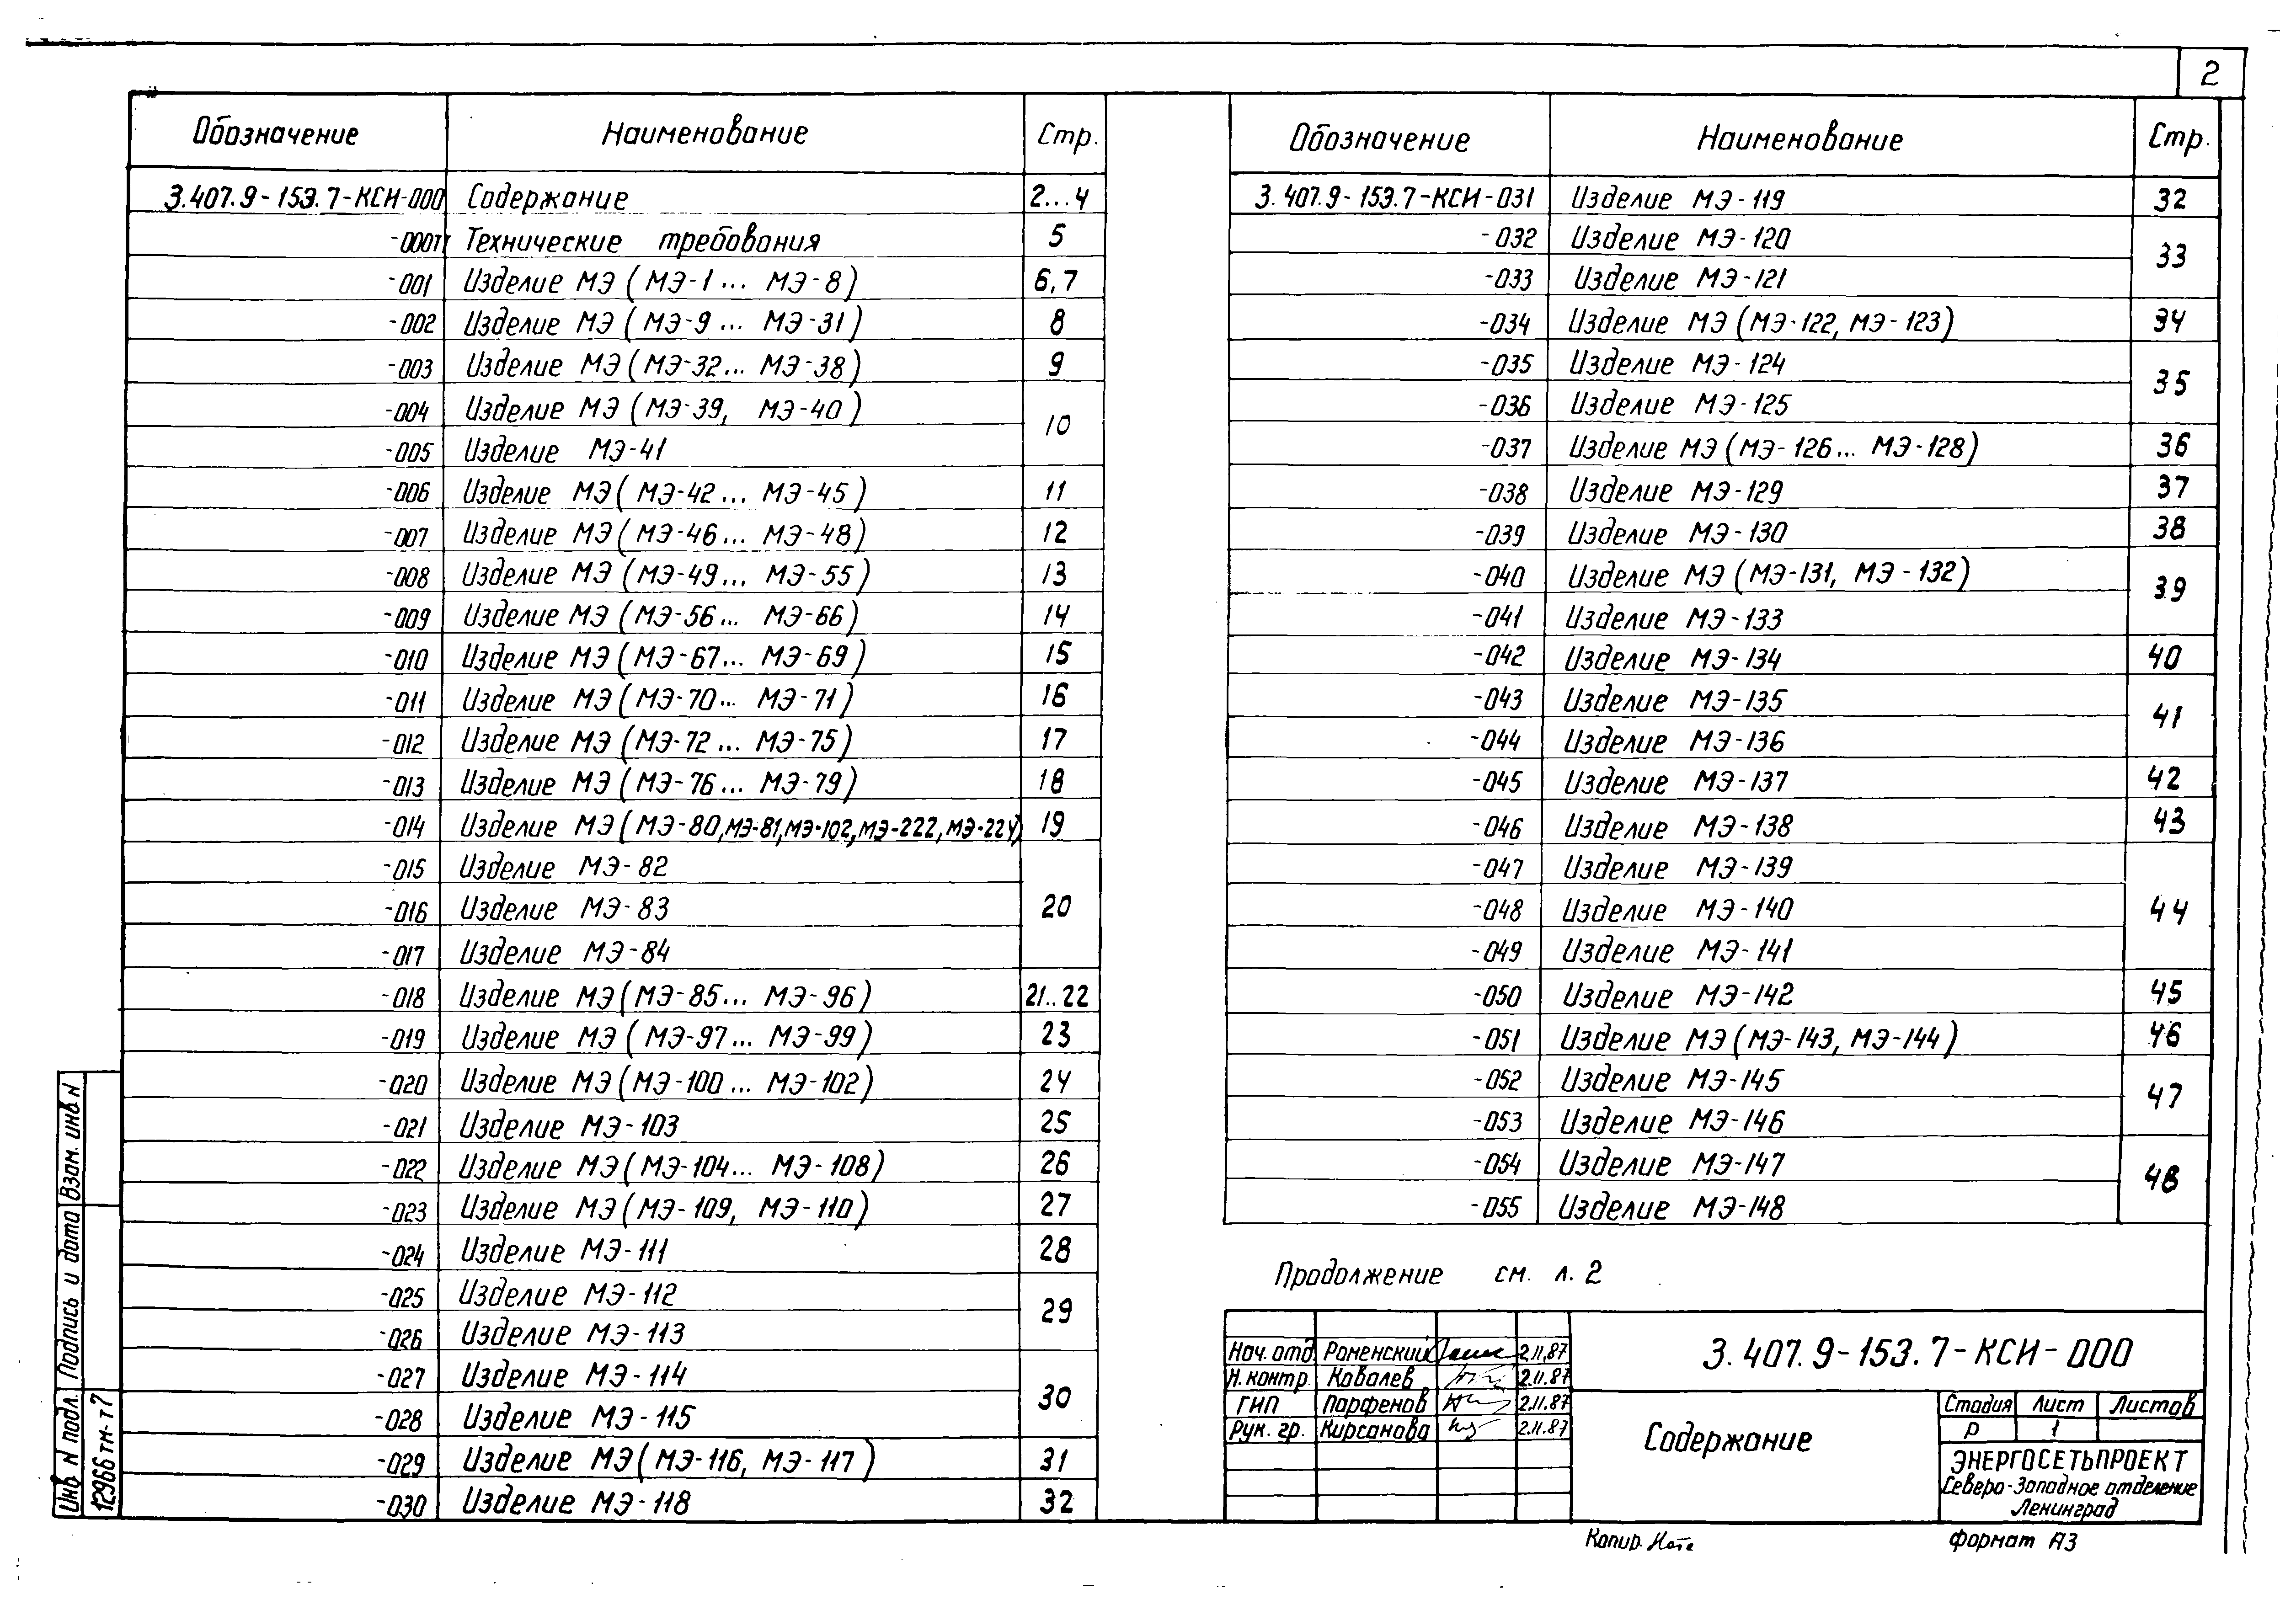 2
Обозначение Наименование Стр.
3.407.9-153.7-КСИ-000 Содержание 2...4
-000ТТ Технические требования 5
-001 Изделие МЭ (МЭ-1... МЭ-8) 6,7
-002 Изделие МЭ (МЭ-9... МЭ-31) 8
-003 Изделие МЭ (МЭ-32... МЭ-38) 9
-004 Изделие МЭ (МЭ-39, МЭ-40) 10
-005 Изделие МЭ-41
-006 Изделие МЭ (МЭ-42... МЭ-45) 11
-007 Изделие МЭ (МЭ-46... МЭ-48) 12
-008 Изделие МЭ (МЭ-49... МЭ-55) 13
-009 Изделие МЭ (МЭ-56... МЭ-66) 14
-010 Изделие МЭ (МЭ-67... МЭ-69) 15
-011 Изделие МЭ (МЭ-70... МЭ-71) 16
-012 Изделие МЭ (МЭ-72... МЭ-75) 17
-013 Изделие МЭ (МЭ-76... МЭ-79) 18
-014 Изделие МЭ (МЭ-80,МЭ-81,МЭ-102,МЭ-222,МЭ-224) 19
-015 Изделие МЭ-82
-016 Изделие МЭ-83 20
-017 Изделие МЭ-84
-018 Изделие МЭ (МЭ-85... МЭ-96) 21..22
-019 Изделие МЭ (МЭ-97... МЭ-99) 23
-020 Изделие МЭ (МЭ-100... МЭ-102) 24
-021 Изделие МЭ-103 25
-022 Изделие МЭ (МЭ-104... МЭ-108) 26
-023 Изделие МЭ (МЭ-109, МЭ-110) 27
-024 Изделие МЭ-111 28
-025 Изделие МЭ-112 29
-026 Изделие МЭ-113
-027 Изделие МЭ-114 30
-028 Изделие МЭ-115
-029 Изделие МЭ (МЭ-116, МЭ-117) 31
-030 Изделие МЭ-118 32
Обозначение Наименование Стр.
3.407.9-153.7-КСИ-031 Изделие МЭ-119 32
-032 Изделие МЭ-120 33
-033 Изделие МЭ-121
-034 Изделие МЭ (МЭ-122, МЭ-123) 34
-035 Изделие МЭ-124 35
-036 Изделие МЭ-125
-037 Изделие МЭ (МЭ-126... МЭ-128) 36
-038 Изделие МЭ-129 37
-039 Изделие МЭ-130 38
-040 Изделие МЭ (МЭ-131, МЭ-132) 39
-041 Изделие МЭ-133
-042 Изделие МЭ-134 40
-043 Изделие МЭ-135 41
-044 Изделие МЭ-136
-045 Изделие МЭ-137 42
-046 Изделие МЭ-138 43
-047 Изделие МЭ-139
-048 Изделие МЭ-140 44
-049 Изделие МЭ-141
-050 Изделие МЭ-142 45
-051 Изделие МЭ (МЭ-143, МЭ-144) 46
-052 Изделие МЭ-145 47
-053 Изделие МЭ-146
-054 Изделие МЭ-147 48
-055 Изделие МЭ-148
Продолжение см. л. 2
Нач. отд. Роменский 2.11.87
Н. контр. Ковалев 2.11.87
ГИП Парфенов 2.11.87
Рук. гр. Кирсанова 2.11.87
3.407.9-153.7-КСИ-000
Содержание
Стадия Лист Листов
Р 1
ЭНЕРГОСЕТЬПРОЕКТ
Северо-Западное отделение
Ленинград
Копир.
Формат А3
Взам. инв N
Подпись и дата
Инв N подл.
12966тм-т7